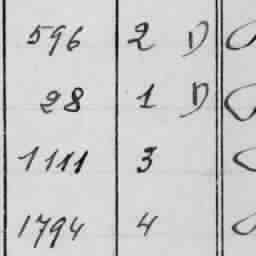 596 2 D
28 1 D
1111 3
1794 4